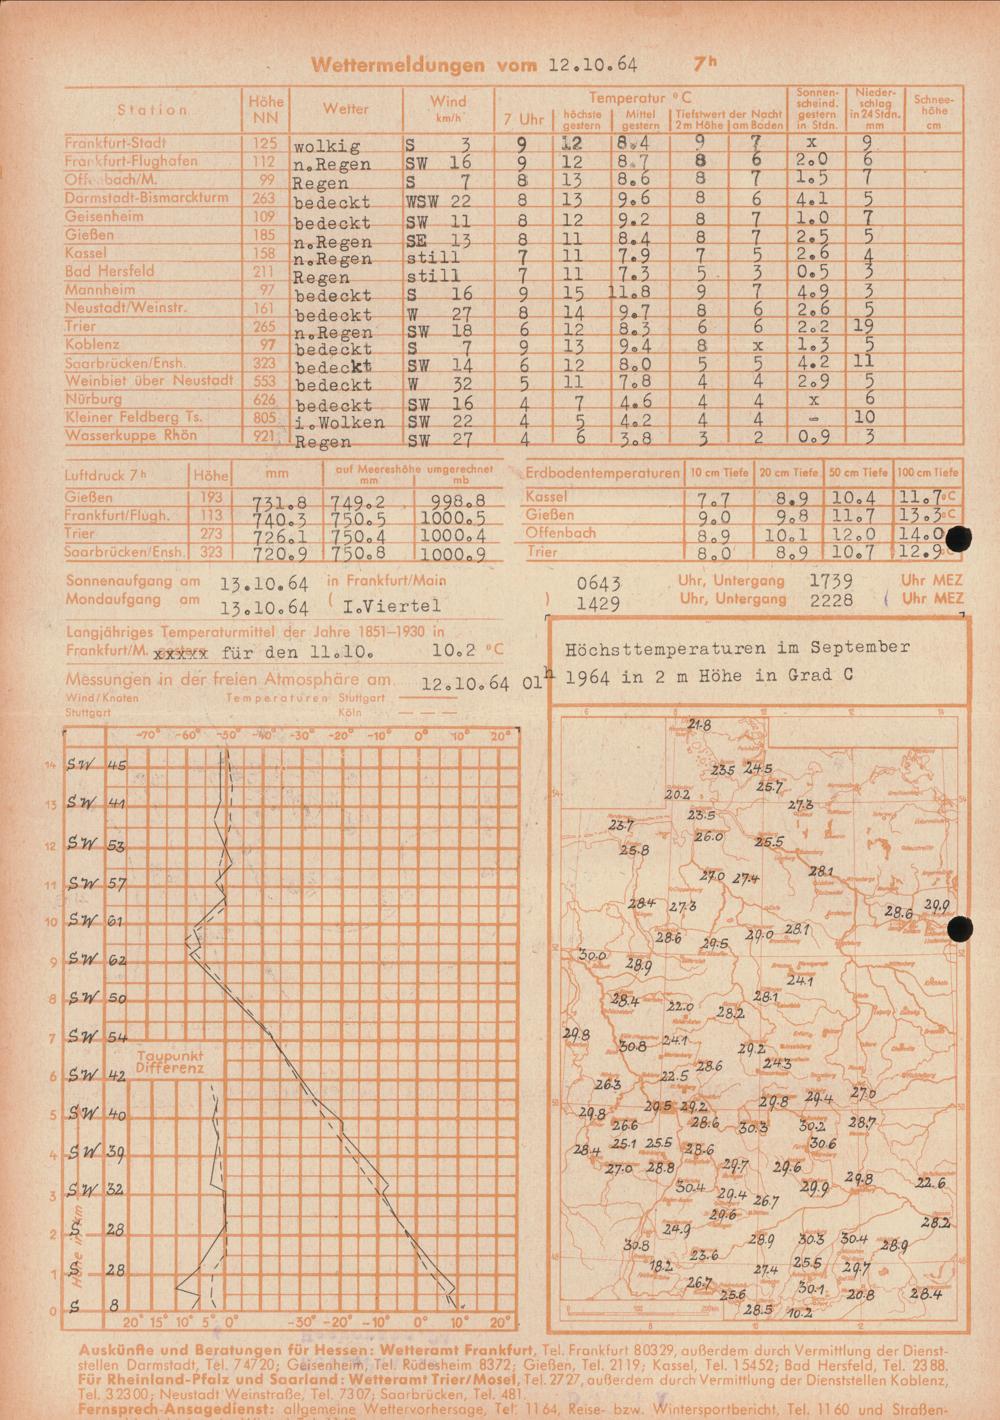 Wettermeldungen vom 12.10.64 7h
Station Höhe NN Wetter Wind km/h Temperatur °C 7 Uhr höchste gestern Mittel gestern Tiefstwert der Nacht 2m Höhe am Boden Sonnenscheind. gestern in Stdn. Niederschlag in 24 Stdn. mm Schneehöhe cm
Frankfurt-Stadt 125 wolkig S 3 9 12 8.4 9 7 x 9
Frankfurt-Flughafen 112 n.Regen SW 16 9 12 8.7 8 6 2.0 6
Offenbach/M. 99 Regen S 7 8 13 8.6 8 7 1.5 7
Darmstadt-Bismarckturm 263 bedeckt WSW 22 8 13 9.6 8 6 4.1 5
Geisenheim 109 bedeckt SW 11 8 12 9.2 8 7 1.0 7
Gießen 185 n.Regen SE 13 8 11 8.4 8 7 2.5 5
Kassel 158 n.Regen still 7 11 7.9 7 5 2.6 4
Bad Hersfeld 211 Regen still 7 11 7.3 5 3 0.5 3
Mannheim 97 bedeckt S 16 9 15 11.8 9 7 4.9 3
Neustadt/Weinstr. 161 bedeckt W 27 8 14 9.7 8 6 2.6 5
Trier 265 n.Regen SW 18 6 12 8.3 6 6 2.2 19
Koblenz 97 bedeckt S 7 9 13 9.4 8 x 1.3 5
Saarbrücken/Ensh. 323 bedeckt SW 14 6 12 8.0 5 5 4.2 11
Weinbiet über Neustadt 553 bedeckt W 32 5 11 7.8 4 4 2.9 5
Nürburg 626 bedeckt SW 16 4 7 4.6 4 4 x 6
Kleiner Feldberg Ts. 805 i.Wolken SW 22 4 5 4.2 4 4 - 10
Wasserkuppe Rhön 921 Regen SW 27 4 6 3.8 3 2 0.9 3
Luftdruck 7h Höhe mm auf Meereshöhe umgerechnet mm mb
Gießen 193 731.8 749.2 998.8
Frankfurt/Flugh. 113 740.3 750.5 1000.5
Trier 273 726.1 750.4 1000.4
Saarbrücken/Ensh. 323 720.9 750.8 1000.9
Erdbodentemperaturen 10 cm Tiefe 20 cm Tiefe 50 cm Tiefe 100 cm Tiefe
Kassel 7.7 8.9 10.4 11.7°C
Gießen 9.0 9.8 11.7 13.3°C
Offenbach 8.9 10.1 12.0 14.0
Trier 8.0 8.9 10.7 12.9°
Sonnenaufgang am 13.10.64 in Frankfurt/Main 0643 Uhr, Untergang 1739 Uhr MEZ
Mondaufgang am 13.10.64 ( I.Viertel ) 1429 Uhr, Untergang 2228 ( Uhr MEZ
Langjähriges Temperaturmittel der Jahre 1851–1930 in
Frankfurt/M. xxxxx für den 11.10. 10.2 °C
Messungen in der freien Atmosphäre am 12.10.64 01h
Wind/Knoten Temperaturen Stuttgart
Stuttgart Köln
-70° -60° -50° -40° -30° -20° -10° 0° 10° 20°
14 SW 45
13 SW 41
12 SW 53
11 SW 57
10 SW 61
9 SW 62
8 SW 50
7 SW 54
Taupunkt
Differenz
6 SW 42
5 SW 40
4 SW 39
3 SW 32
2 S 28
1 S 28
0 S 8
Höhe in km
20° 15° 10° 5° 0° -30° -20° -10° 0° 10° 20°
Höchsttemperaturen im September
1964 in 2 m Höhe in Grad C
6 8 10 12 14
21.8
23.5 24.5
25.7
20.2 27.3
23.5
23.7
26.0 25.5
25.8
27.0 27.4 28.1
28.4 27.3 28.6 29.9
28.6 29.5 29.0 28.1
30.0 28.9
24.1
28.4 22.0 28.2 28.1
29.8 30.8 24.1 29.2
28.6 24.3
26.3 22.5
29.5 29.2 29.8 29.4 27.0
29.8 26.6 28.6 30.3 30.2 28.7
28.4 25.1 25.5 28.6 30.6
27.0 28.8 29.7 29.6
30.4 29.4 26.7 29.9 29.8 22.6
29.6 28.2
24.9
30.8 23.6 28.9 30.3 30.4 28.9
18.2 27.4 25.5 29.7
26.7 25.6 30.1 20.8 28.4
28.5 10.2
8 10 12
Auskünfte und Beratungen für Hessen: Wetteramt Frankfurt, Tel. Frankfurt 80329, außerdem durch Vermittlung der Dienst-
stellen Darmstadt, Tel. 74720; Geisenheim, Tel. Rüdesheim 8372; Gießen, Tel. 2119; Kassel, Tel. 15452; Bad Hersfeld, Tel. 2388.
Für Rheinland-Pfalz und Saarland: Wetteramt Trier/Mosel, Tel. 2727, außerdem durch Vermittlung der Dienststellen Koblenz,
Tel. 32300; Neustadt Weinstraße, Tel. 7307; Saarbrücken, Tel. 481.
Fernsprech-Ansagedienst: allgemeine Wettervorhersage, Tel. 1164, Reise- bzw. Wintersportbericht, Tel. 1160 und Straßen-